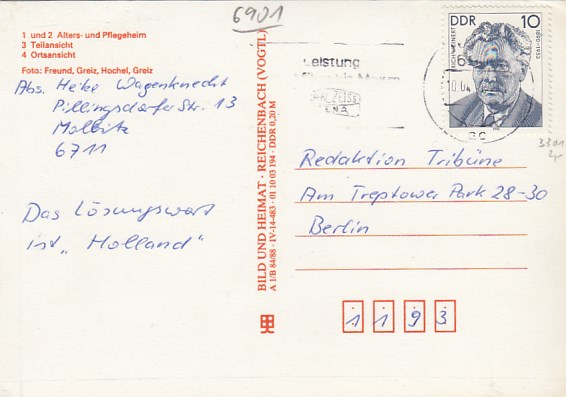 6901
1 und 2 Alters- und Pflegeheim
3 Teilansicht
4 Ortsansicht
Foto: Freund, Greiz, Hochel, Greiz
Abs. Heike Wagenknecht
Pillingsdorfer Str. 13
6711
Das Lösungswort
ist „Holland"
BILD UND HEIMAT · REICHENBACH (VOGTL)
A 1/B 84/88 · IV-14-483 · 01 10 03 194 · DDR 0,20 M
Leistung
ZEISS
JENA
DDR 10
1890-1952
10.04
Redaktion Tribüne
Am Treptower Park 28-30
Berlin
1193